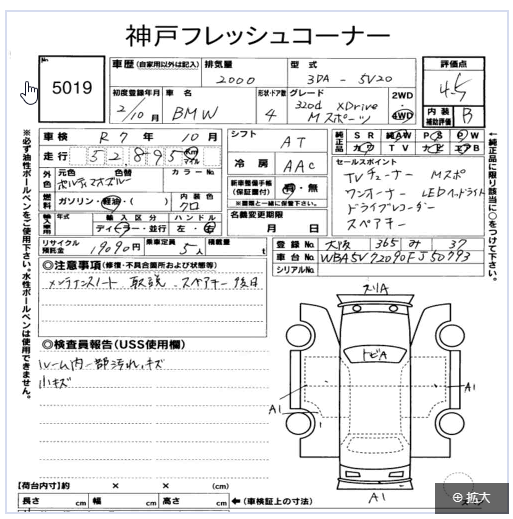 神戸フレッシュコーナー
5019
車歴 (自家用以外は記入) 排気量 型式 評価点
2000 3DA - 5V20 4.5
初度登録年月 車名 形状・ドア数 グレード 2WD 内装補助評価
2/10月 BMW 4 320d xDrive Mスポーツ 4WD B
車検 R7年10月 シフト AT 純正品 SR 純AW PS PW
走行 52895 Km マイル カワ TV ナビ エアB
外色 元色 色替 カラーNo. 冷房 AAC セールスポイント
燃料 ガソリン・軽油・( ) 内装色 クロ 新車整備手帳(保証書付) 有・無
※書類と一緒に保管下さい。
TVチューナー Mスポ
ワンオーナー LEDヘッドライト
ドライブレコーダー
スペアキー
輸入車 年式 輸入区分 ハンドル 名義変更期限
ディーラー・並行 左・右 月 日
リサイクル預託金 19090円 乗車定員 5人 積載量 t
登録No. 大阪 365 み 37
車台No. WBA5V72090FJ50793
シリアルNo.
◎注意事項(修復・不具合箇所および状態等)
メンテナンスノート 取説 スペアキー 後日
◎検査員報告(USS使用欄)
ルーム内一部汚れ、キズ
小キズ
スリA
トビA
A1
A1
A1
【荷台内寸】約 × × (cm)
長さ cm 幅 cm 高さ cm ←(車検証上の寸法)
※必ず油性ボールペンをご使用下さい。水性ボールペンは使用できません。
←純正品に限り該当に○をつけて下さい。
拡大